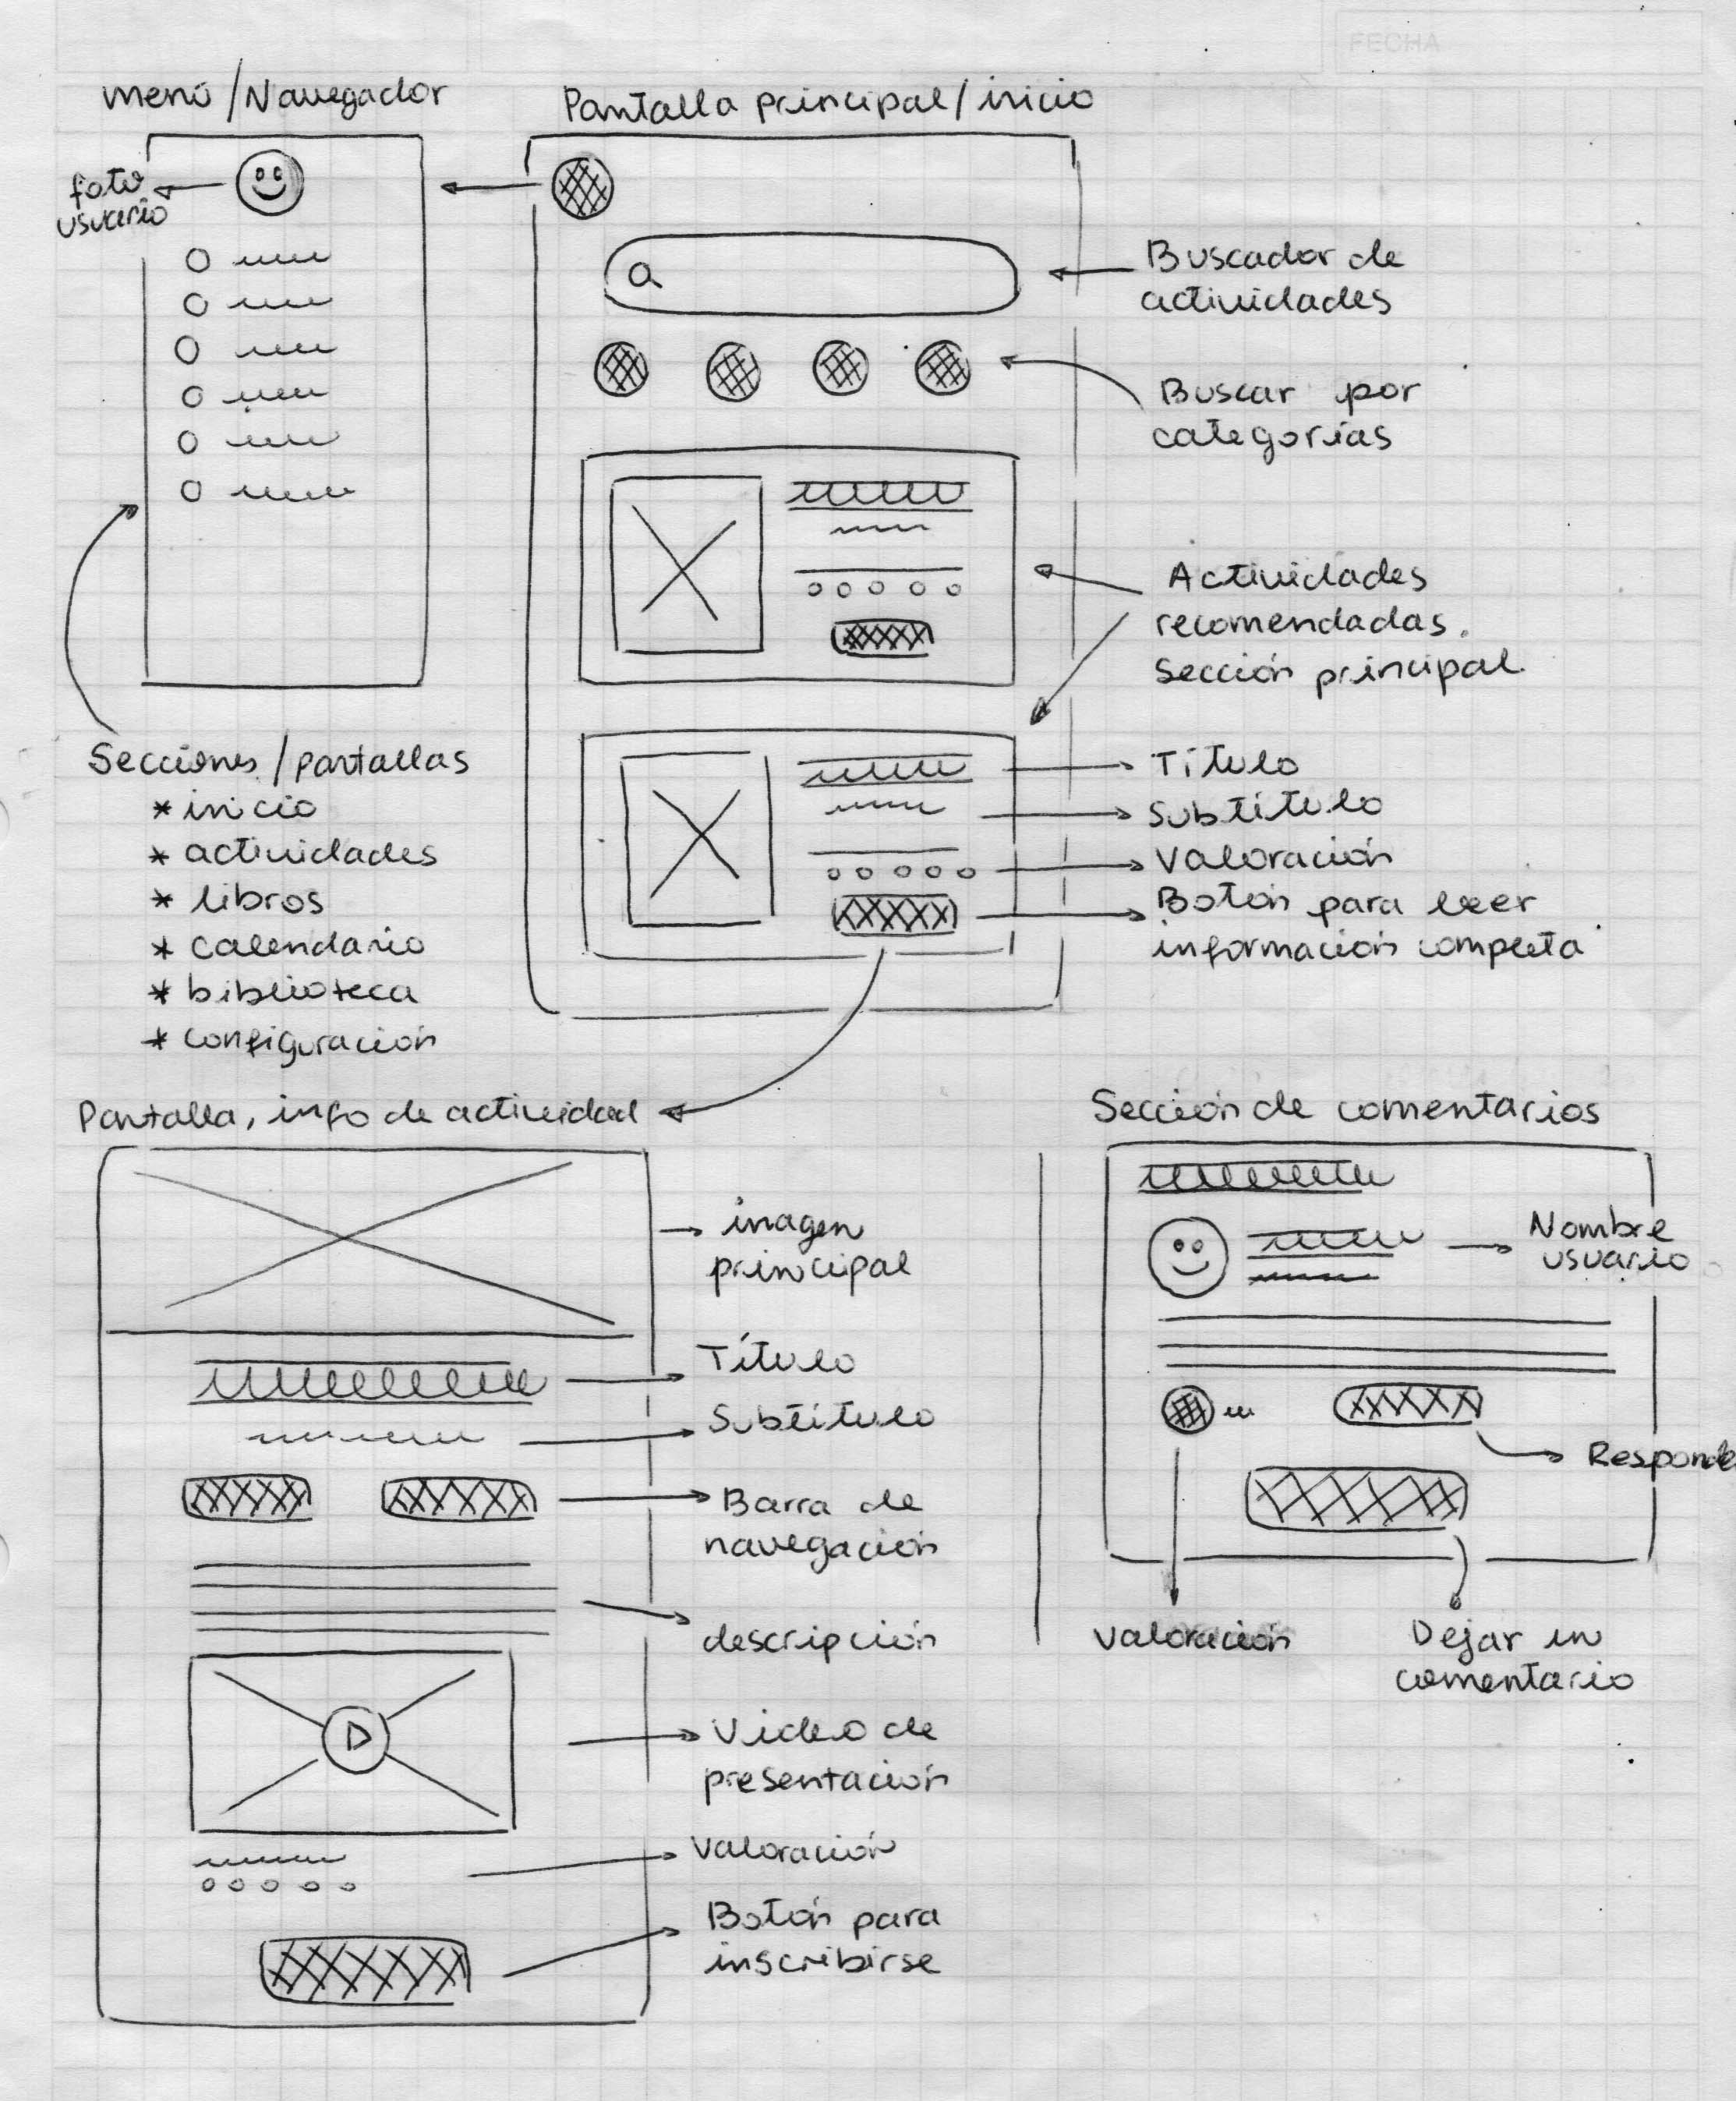 FECHA
menú / Navegador
foto
usuario
Secciones / pantallas
* inicio
* actividades
* libros
* calendario
* biblioteca
* configuración
Pantalla principal / inicio
Buscador de
actividades
Buscar por
categorías
Actividades
recomendadas.
Sección principal
Título
Subtítulo
Valoración
Botón para leer
información completa
Pantalla, info de actividad
imagen
principal
Título
Subtítulo
Barra de
navegación
descripción
Video de
presentación
Valoración
Botón para
inscribirse
Sección de comentarios
Nombre
usuario
Responde
Valoración
Dejar un
comentario